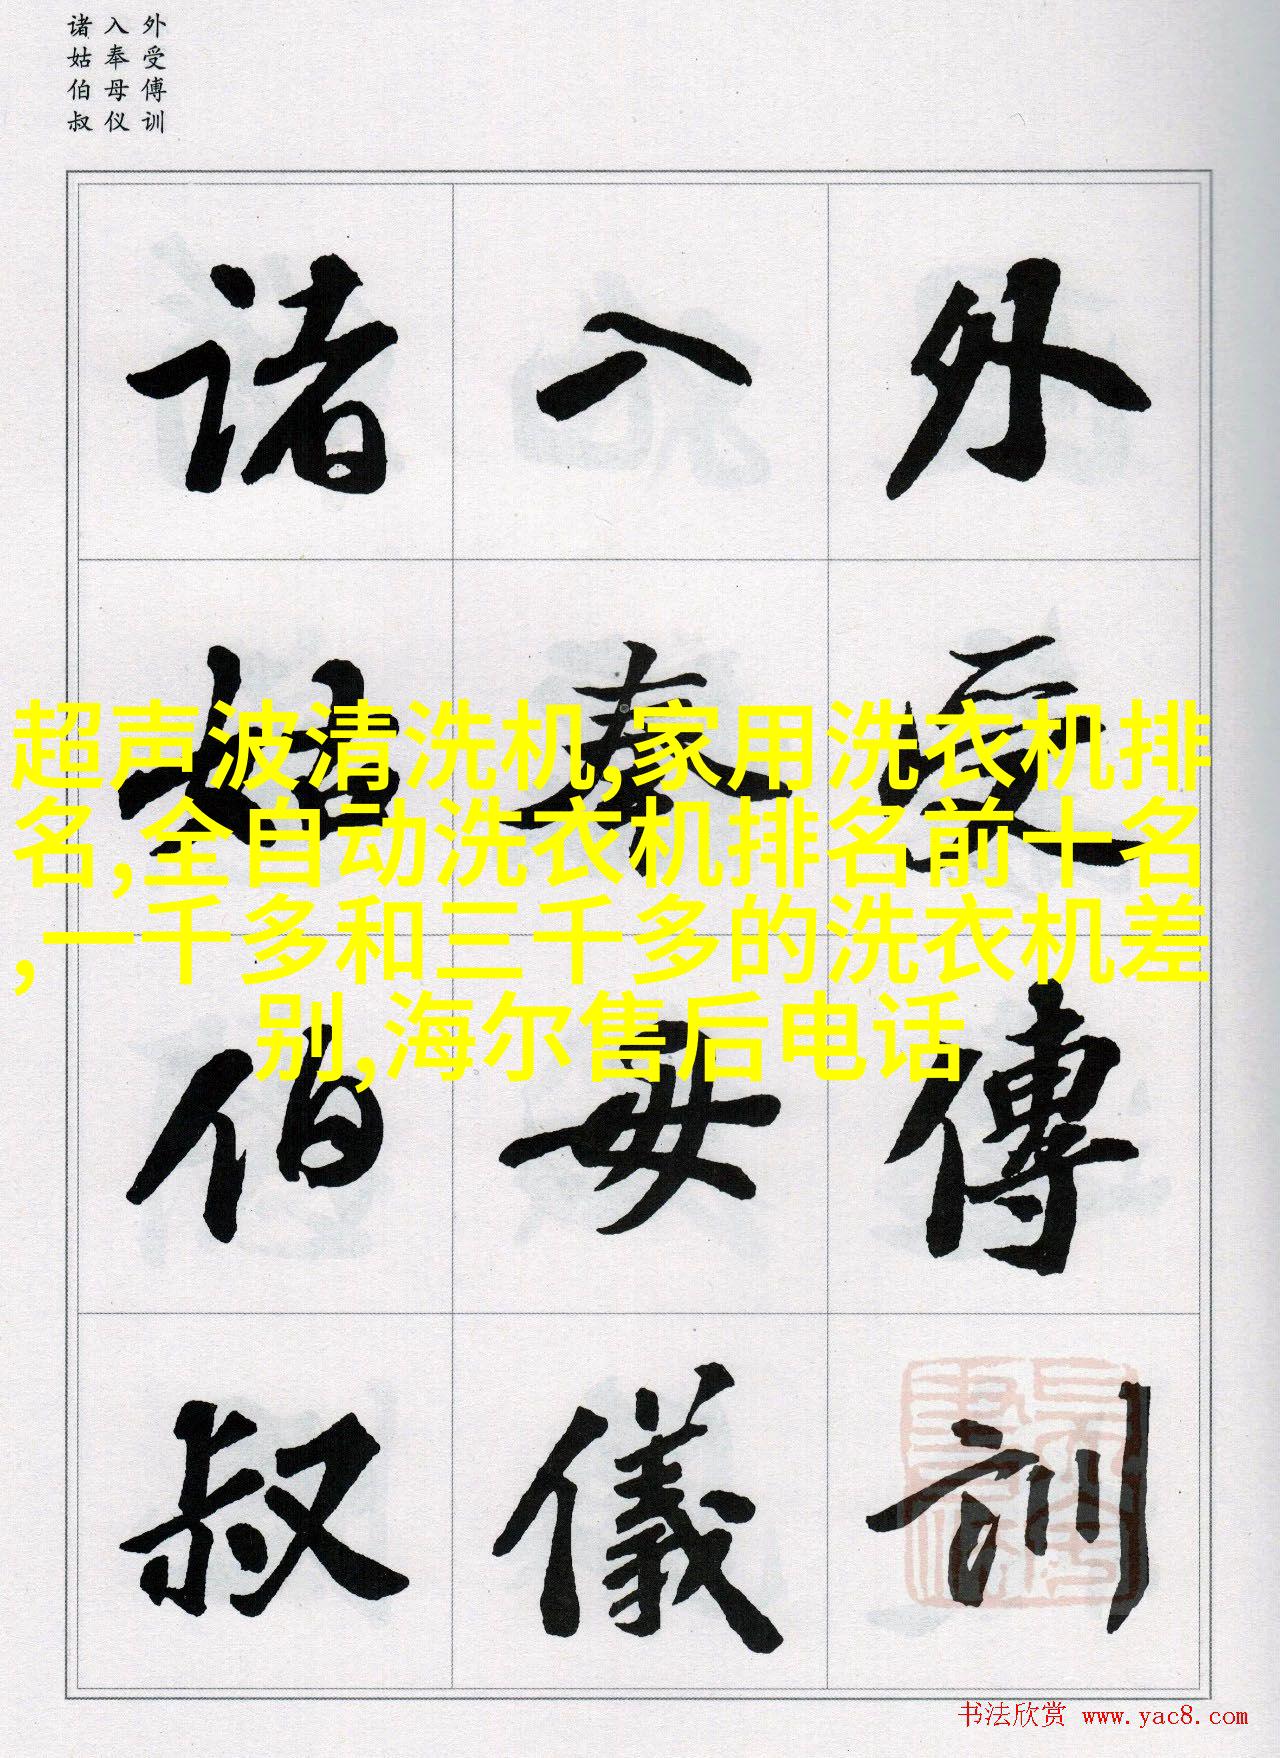 外受傅训
入奉母仪
诸姑伯叔
外受傅訓
入奉母儀
诸姑伯叔
超声波清洗机,家用洗衣机排
名,全自动洗衣机排名前十名
,一千多和三千多的洗衣机差
别,海尔售后电话
书法欣赏 www.yac8.com